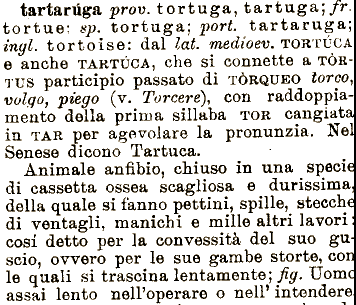 tartarúga prov. tortuga, tartuga; fr.
tortue: sp. tortuga; port. tartaruga;
ingl. tortoise: dal lat. medioev. TORTÚCA
e anche TARTÚCA, che si connette a TÒR-
TUS participio passato di TÒRQUEO torco,
volgo, piego (v. Torcere), con raddoppia-
mento della prima sillaba TOR cangiata
in TAR per agevolare la pronunzia. Nel
Senese dicono Tartuca.
Animale anfibio, chiuso in una specie
di cassetta ossea scagliosa e durissima,
della quale si fanno pettini, spille, stecche
di ventagli, manichi e mille altri lavori:
cosí detto per la convessità del suo gu-
scio, ovvero per le sue gambe storte, con
le quali si trascina lentamente; fig. Uomo
assai lento nell'operare o nell'intendere